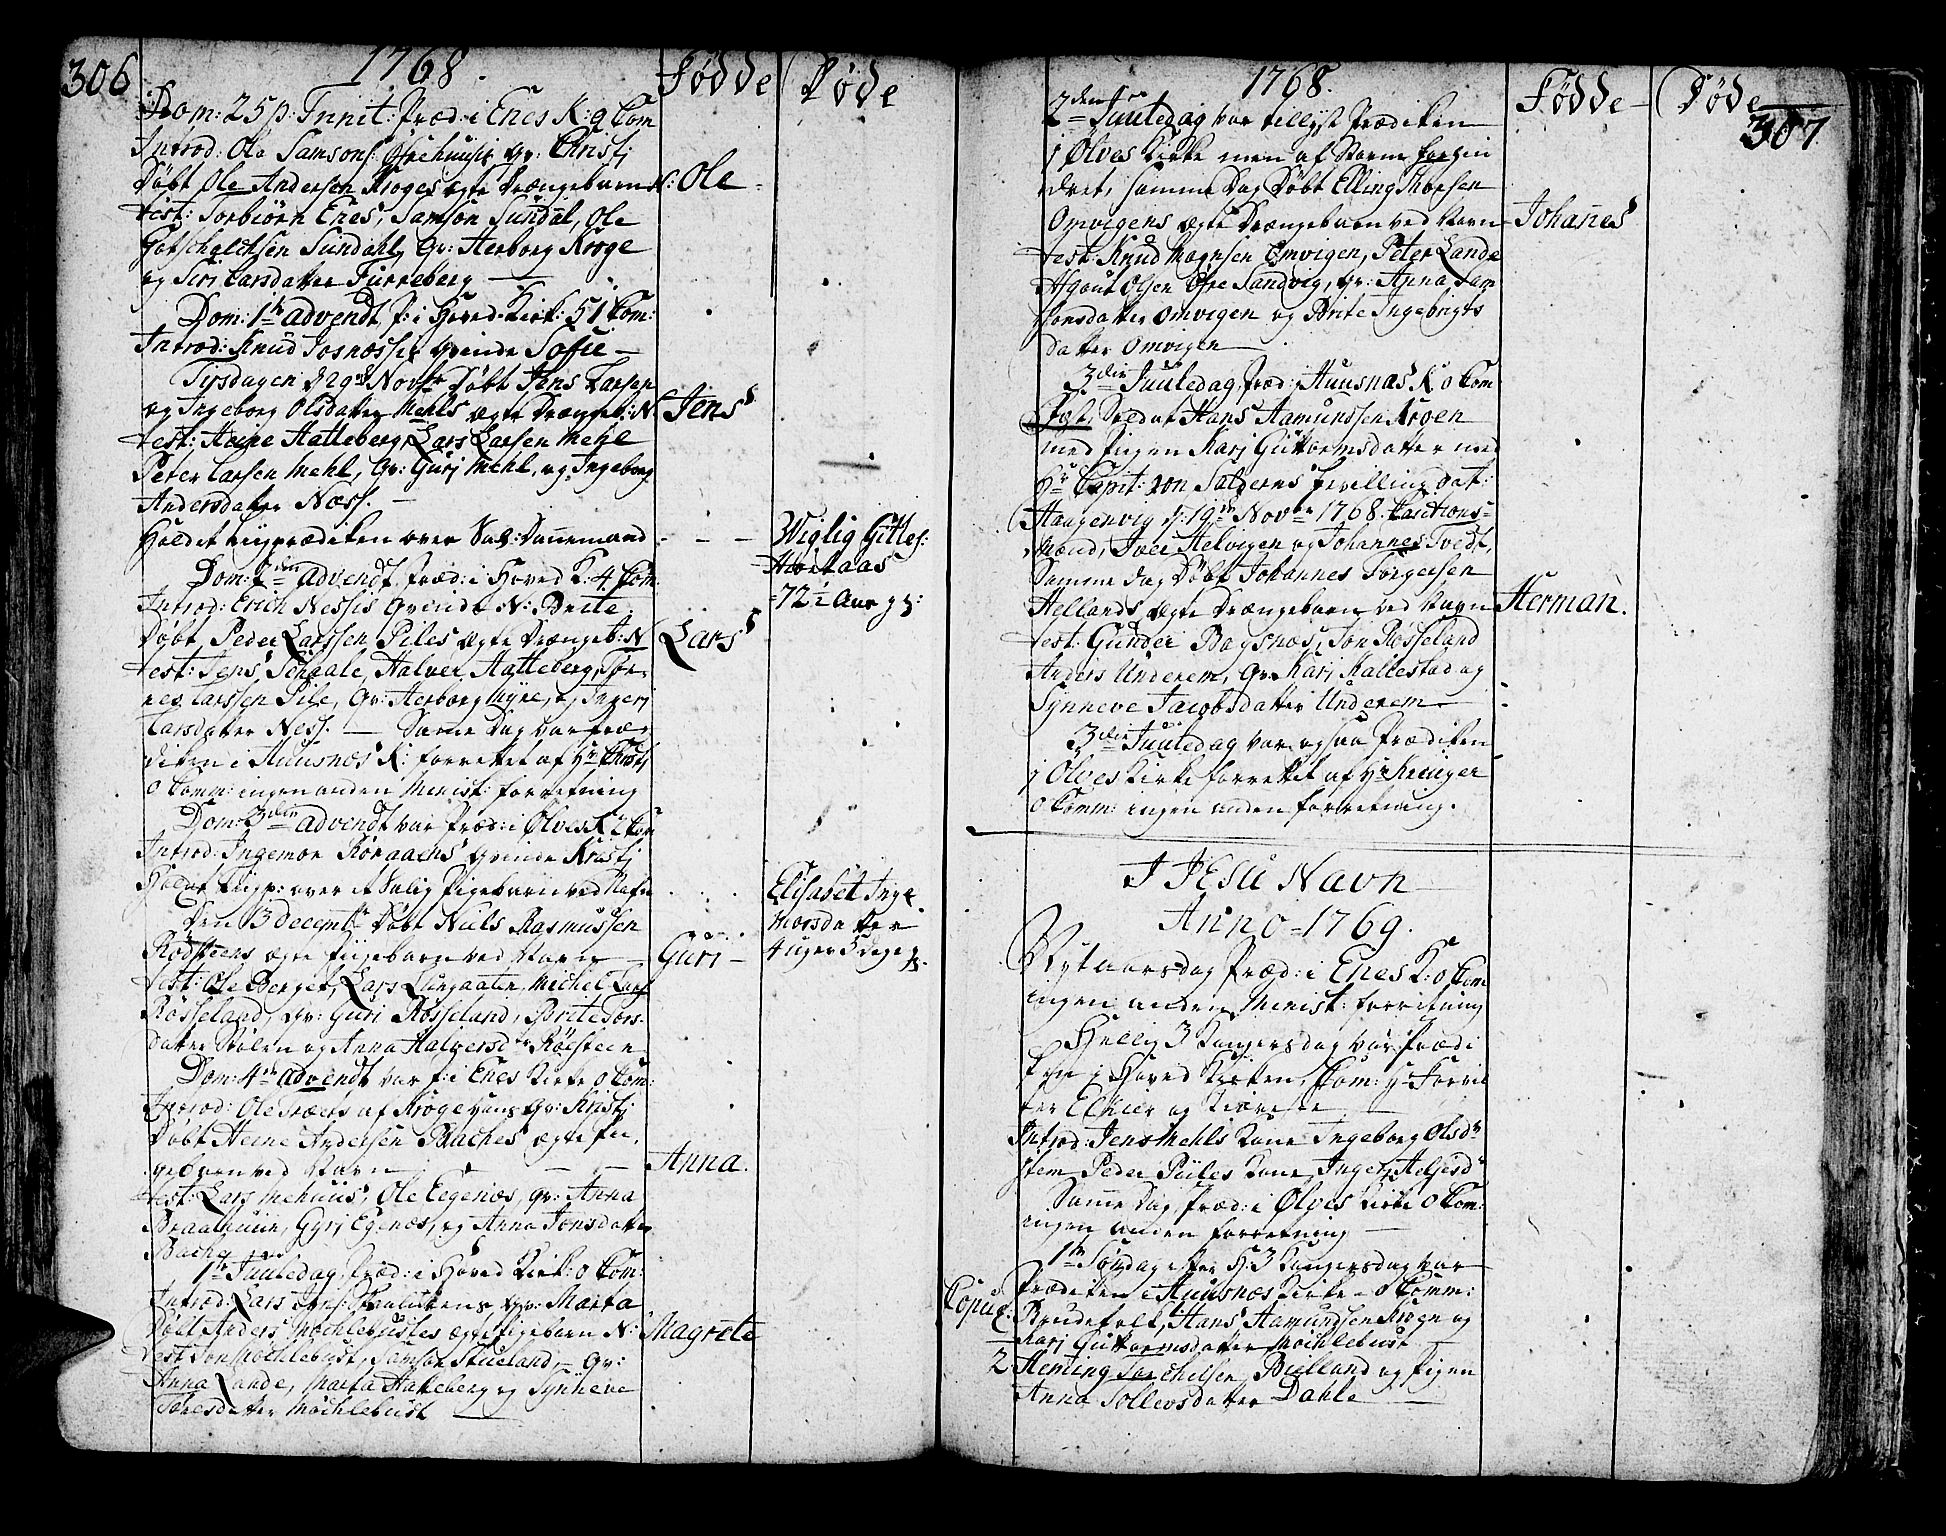 306
1768.
Fødde
Døde
Dom: 25 p: Trinit: Præd: i Enes K: 9 Com
Introd: Ole Samsons Øfrehuusis qv: Christj
Døbt Ole Andersen Kroges ægte Drængebarn N: Ole
test: Torbiørn Enes, Samson Sundal, Ole
Gotschalchsen Sundahl, Qv: Herborg Kroge
og Siri Larsdatter Furreberg
Dom: 1te advendt P: i Hoved-Kirk: 51 Com:
Introd: Knud Rosnæssis qvinde Soffie
Tirsdagen d 29de Novbr Døbt Jens Larsen
og Ingeborg Olsdatter Mehls ægte Drængeb: N. Jens
test: Heine Hatteberg, Lars Larsen Mehl
Peter Larsen Mehl, Qv: Gurj Mehl, og Ingeborg
Andersdatter Næss.
Holdet Liigprædiken over Sal: Dannemand
Wiglig Gitles:
Høelaas
72 1/2 Aar g:
Dom: 2den advendt Præd: i Hoved K: 4 Com:
Introd: Erich Nessis Qvinde N: Brite
Døbt Peder Larssen Piles ægte Drængeb: N Lars
test: Jens Schaale, Halver Hatteberg, Tør-
res Larssen Pile, Qv: Herborg Myre, og Ingerj
Larsdatter Ness. Samme Dag var Præ-
diken i Huusnæs K: forrettet af Hr
0 Comm: ingen anden Minist: forretning
Dom: 3die advendt var Præd: i Ølves K: 2 Com
Introd: Ingemor Røraaens qvinde Kristj
Holdt Liigp: over et Salig Pigebarn ved Nafn
Elisabet Inge
morsdatter
4 uger 5 dage g:
Den 13 Decembr Døbt Niels Rasmussen
Rødsteens ægte Pigebarn ved Navn Guri
test: Ole Berget, Lars Liingaaten, Michel Lars
Røsseland, Qv: Guri Røsseland, Brite Tors-
datter Stølen og Anna Halversdtr Røesteen
Dom: 4de advendt var P: i Enes Kirke 0 Com:
Introd: Ole Træets af Kroge hans Qv: Kristj
Døbt Heine Andersen Baches ægte Pi-
gebarn ved Navn Anna.
test: Lars Mehuus, Ole Eegenæs, Qv: Anna
Braaheim, Gyrj Egenæs, og Anna Jonsdatter
Bache
1te Juuledag Præd: i Hoved Kirk: 0 Com:
Introd: Lars Qv: Marta
Døbt Anders Møchlebustes ægte Pigebarn N: Magrete
test Jon Møchlebust, Samson Stueland, Qv:
Anna Lande, Marta Hatteberg og Synneve
Tøresdatter Møchlebust
1768.
Fødde
Døde
307
2den Juuledag var tillyst Prædiken
i Ølves Kirke men af Storm forhin
dret, samme Dag Døbt Elling Thorsen
Omvigens ægte Drængebarn ved Navn Johanes
test: Knud Magnsen Omvigen, Peter Lande
Agaut Olsen Øfre Sandvig, Qv: Anna Sam
sonsdatter Omvigen og Brite Ingebrigts
datter Omvigen
3die Juuledag, Præd: i Huusnæs K 0 Com
Fæst: Soldat Hans Aamundssen Kroen
med Pigen Karj Guttormsdatter med
Hr Capit: von Saldernes bevilling dat:
Haagenvig d: 19de Novbr 1768. Cautions-
mænd, Iver Helvigen og Johannes Tvedt,
Samme dag Døbt Johannes Torgersen
Hellands ægte Drængebarn ved Navn Herman.
test: Gunder Bogsnæs, Jon Røsseland
Anders Underem, Qv: Karj Hallestad og
Synneve Jacobsdatter Underem
3die Juuledag var ogsaa Prædiken
i Ølves Kirke forrettet af Hr Krüger
0 Comm: ingen anden forretning.
I JESU Navn
Anno 1769.
Nytaarsdag Præd: i Enes K: 0 Com
ingen anden Minist: forretning
Hellig 3 Kongersdag var Prædi
ken i Hoved Kirken, Com:
ter Elchier og Kiæreste
Introd: Jens Mehls Kone Ingeborg Olsdtr
item Peder Piiles Kone Ingerj Helgesdtr
Samme Dag Præd: i Ølves Kirke 0 Com:
ingen anden forretning
1te Søndag efter H: 3 Kongersdag var
Prædiken i Huusnæs Kirke 0 Comm:
Copul: Brudefolk, Hans Aamundsen Kroen og
Karj Guttormsdatter Møchlebust
2 Heming Torchelsen Bielland og Pigen
Anna Tollevsdatter Dahle